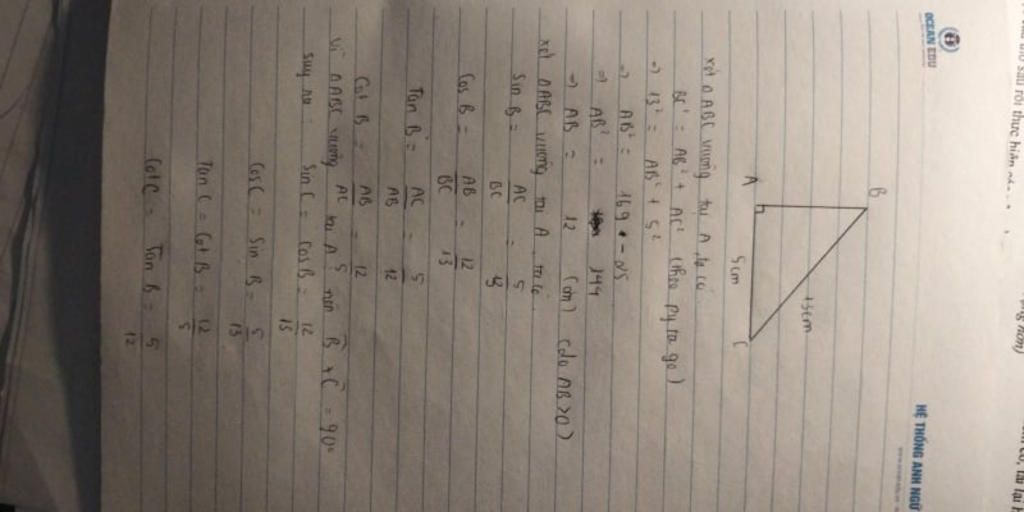 OCEAN EDU
HỆ THỐNG ANH NGỮ
B
13cm
A
5cm
C
xét ΔABC vuông tại A, ta có
BC² = AB² + AC² (theo py ta go)
=> 13² = AB² + 5²
=> AB² = 169 - 25
=> AB² = 144
=> AB = 12 (cm) (do AB>0)
xét ΔABC vuông tại A, ta có
Sin B = AC/BC = 5/13
Cos B = AB/BC = 12/13
Tan B = AC/AB = 5/12
Cot B = AB/AC = 12/5
Vì ΔABC vuông tại A nên B̂ + Ĉ = 90°
suy ra: Sin C = cos B = 12/13
Cos C = Sin B = 5/13
Tan C = Cot B = 12/5
Cot C = Tan B = 5/12